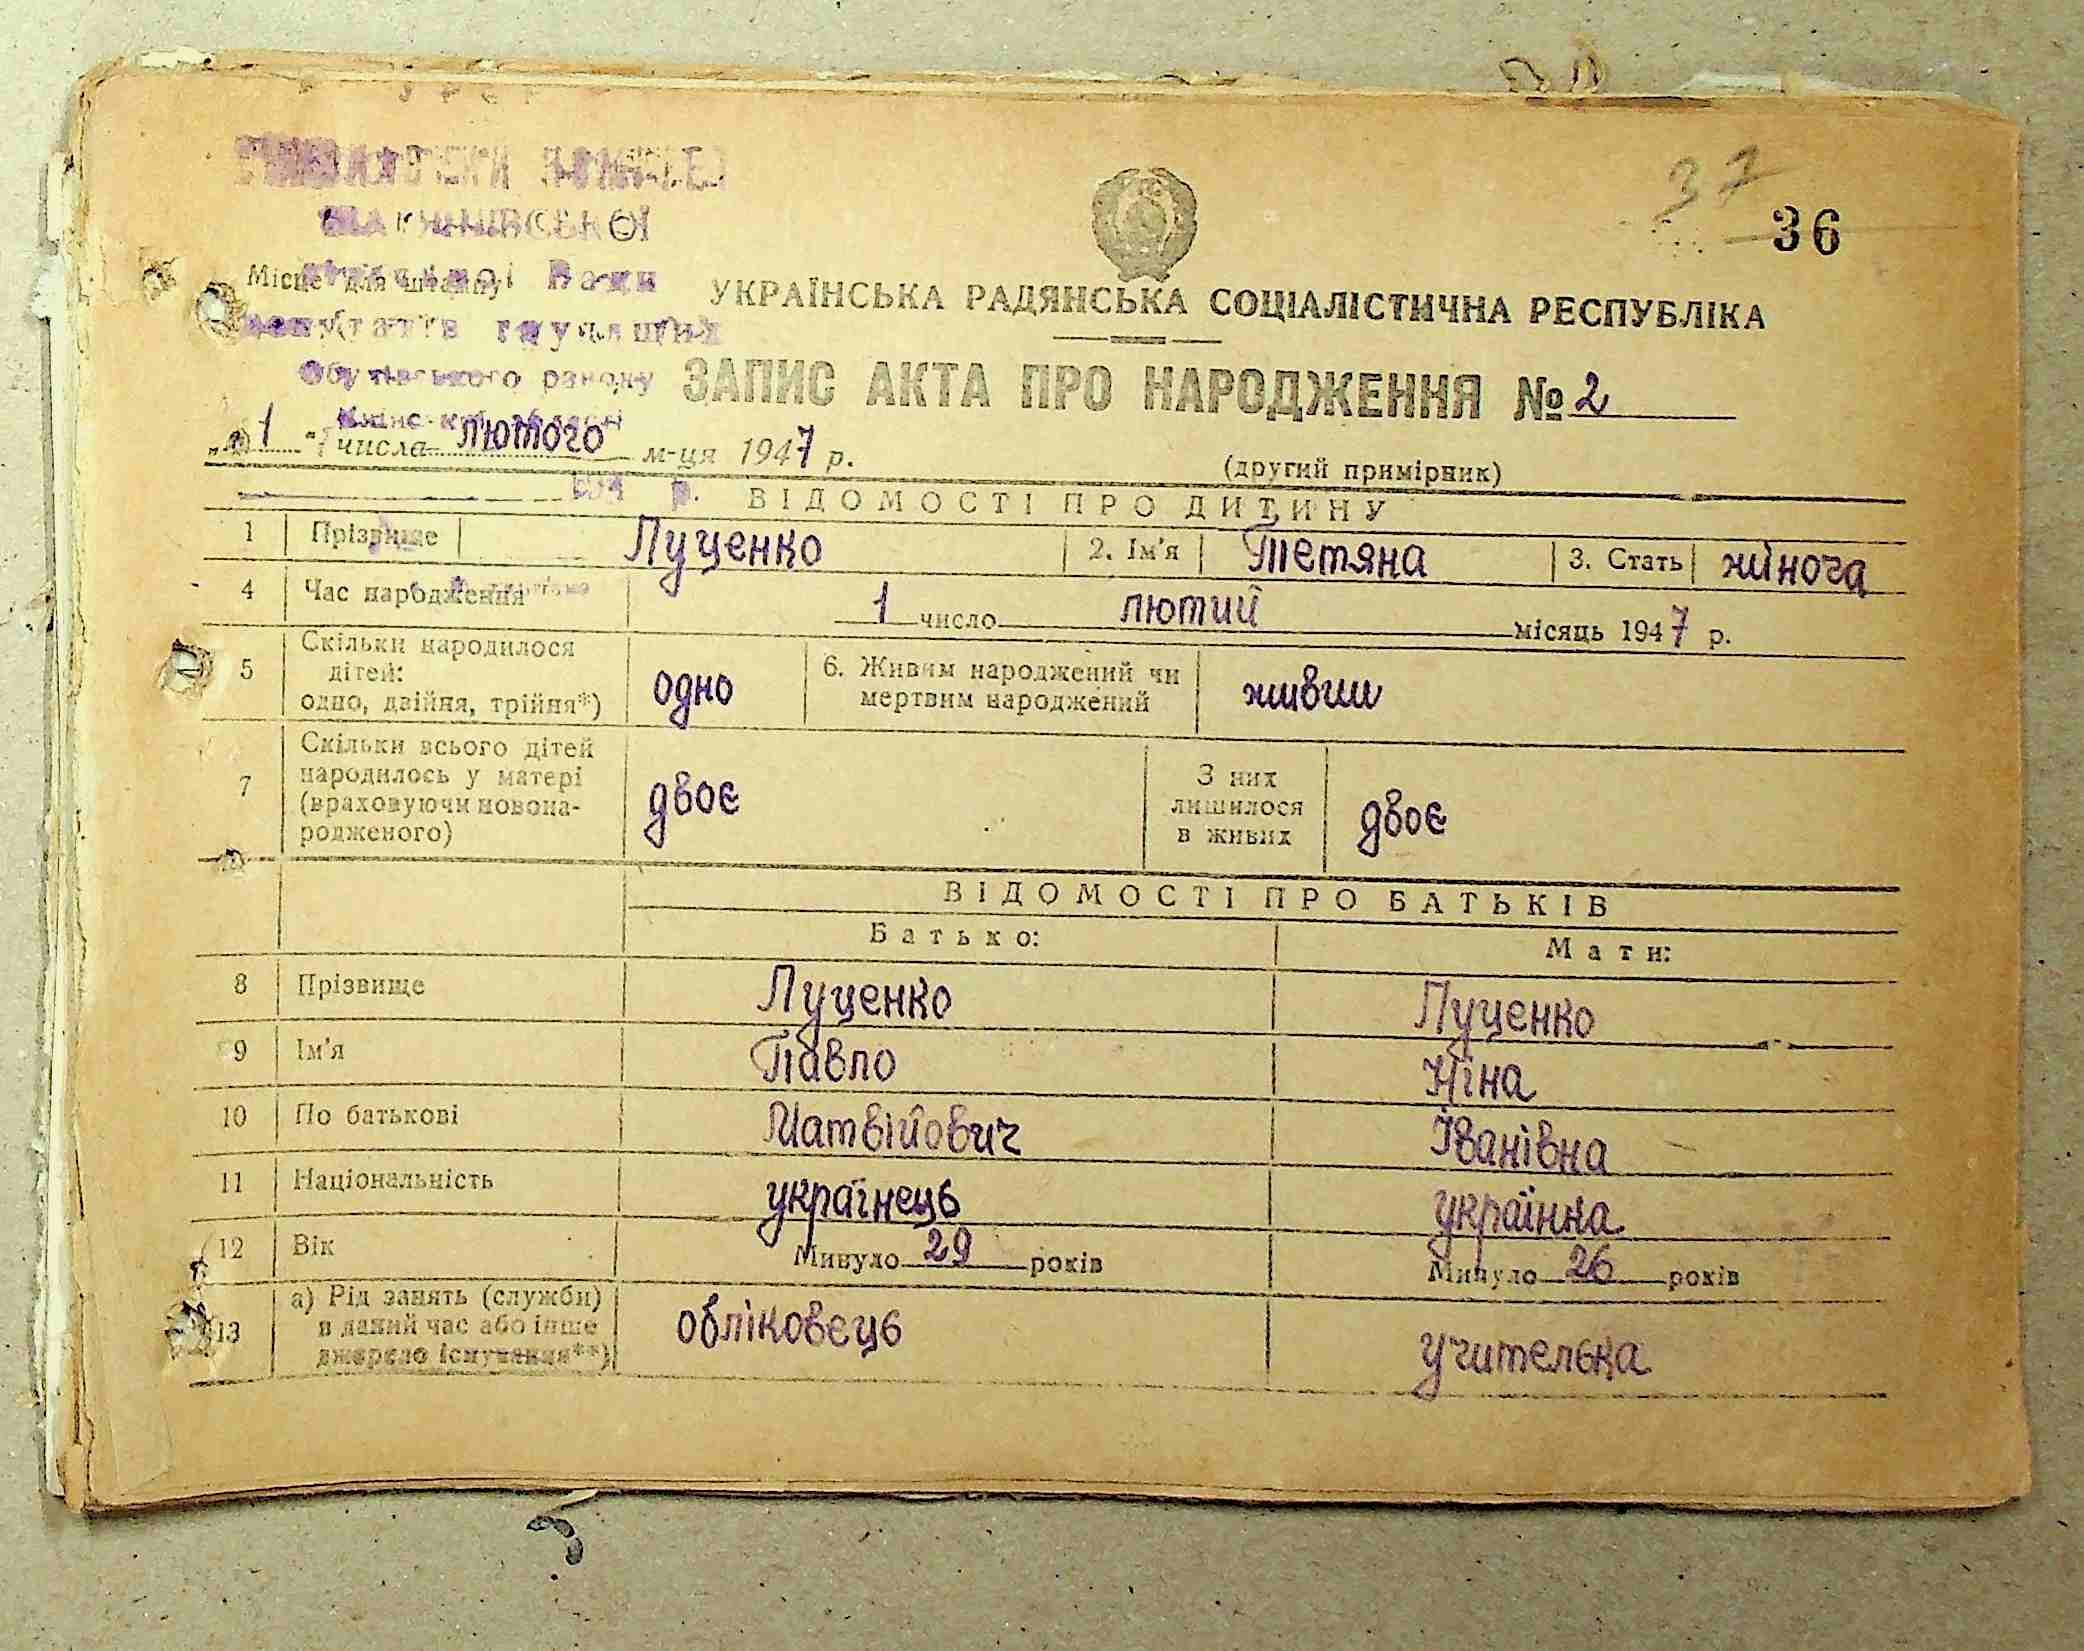 37
36
Місце для штампу
УКРАЇНСЬКА РАДЯНСЬКА СОЦІАЛІСТИЧНА РЕСПУБЛІКА
Обухівського району
ЗАПИС АКТА ПРО НАРОДЖЕННЯ № 2
„1" числа лютого м-ця 1947 р.
(другий примірник)
194 р.
ВІДОМОСТІ ПРО ДИТИНУ
1 Прізвище Луценко 2. Ім'я Тетяна 3. Стать жіноча
4 Час народження 1 число лютий місяць 1947 р.
5 Скільки народилося дітей: одно, двійня, трійня*) одно 6. Живим народжений чи мертвим народжений живим
7 Скільки всього дітей народилось у матері (враховуючи новонародженого) двоє З них лишилося в живих двоє
ВІДОМОСТІ ПРО БАТЬКІВ
Батько: Мати:
8 Прізвище Луценко Луценко
9 Ім'я Павло Ніна
10 По батькові Матвійович Іванівна
11 Національність українець українка
12 Вік Минуло 29 років Минуло 26 років
13 а) Рід занять (служби) в даний час або інше джерело існування**) обліковець учителька